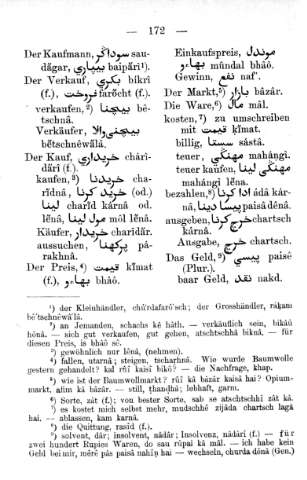 — 172 —
Der Kaufmann, سوداگر sau-
dāgar, بیپاری baipārī¹).
Der Verkauf, بکری bikrī
(f.), فروخت farōcht (f.).
verkaufen,²) بیچنا bē-
tschnā.
Verkäufer, بیچنیوالا
bētschnēwālā.
Der Kauf, خریداری charī-
dārī (f.).
kaufen,³) خریدنا cha-
rīdnā, خرید کرنا (od.)
لینا charīd kárnā od.
lēnā, مول لینا mōl lēnā.
Käufer, خریدار charīdār.
aussuchen, پرکھنا pá-
rakhnā.
Der Preis,⁴) قیمت kīmat
(f.), بھاو bhāō.
Einkaufspreis, موندل
بھاو mūndal bhāō.
Gewinn, نفع naf'.
Der Markt,⁵) بازار bāzār.
Die Ware,⁶) مال māl.
kosten,⁷) zu umschreiben
mit قیمت kīmat.
billig, سستا sástā.
teuer, مهنگی mahángī.
teuer kaufen, مهنگی لینا
mahángī lēna.
bezahlen,⁸) ادا کرنا adá kár-
nā, پیسا دینا paisā dēnā.
ausgeben, خرچ کرنا chartsch
kárnā.
Ausgabe, خرچ chartsch.
Das Geld,⁹) پیسی paisē
(Plur.).
baar Geld, نقد nakd.
¹) der Kleinhändler, chúrdafarō'sch; der Grosshändler, rákam
bē'tschnēwālā.
²) an Jemanden, schachs kē hāth. — verkäuflich sein, bikāū
hōnā. — sich gut verkaufen, gut gehen, atschtschhā biknā. — für
diesen Preis, is bhāō sē.
³) gewöhnlich nur lēnā, (nehmen).
⁴) fallen, utarnā; steigen, tscharhnā. Wie wurde Baumwolle
gestern gehandelt? kal rūī kaisī bikō? — die Nachfrage, khap.
⁵) wie ist der Baumwollmarkt? rūī kā bāzār kaisā hai? Opium-
markt, afīm kā bāzār. — still, ṭhandhā; lebhaft, garm.
⁶) Sorte, zāt (f.); von bester Sorte, sab se atschtschhī zāt kā.
⁷) es kostet mich selbst mehr, mudschhē zijāda chartsch lagā
hai. — ablassen, kam karnā.
⁸) die Quittung, rasīd (f.).
⁹) solvent, dār; insolvent, nādār; Insolvenz, nādārī (f.) — für
zwei hundert Rupies Waren, do sau rūpai kā māl. — ich habe kein
Geld bei mir, mērē pās paisā nahīṇ hai — wechseln, churda dēnā (Gen.)